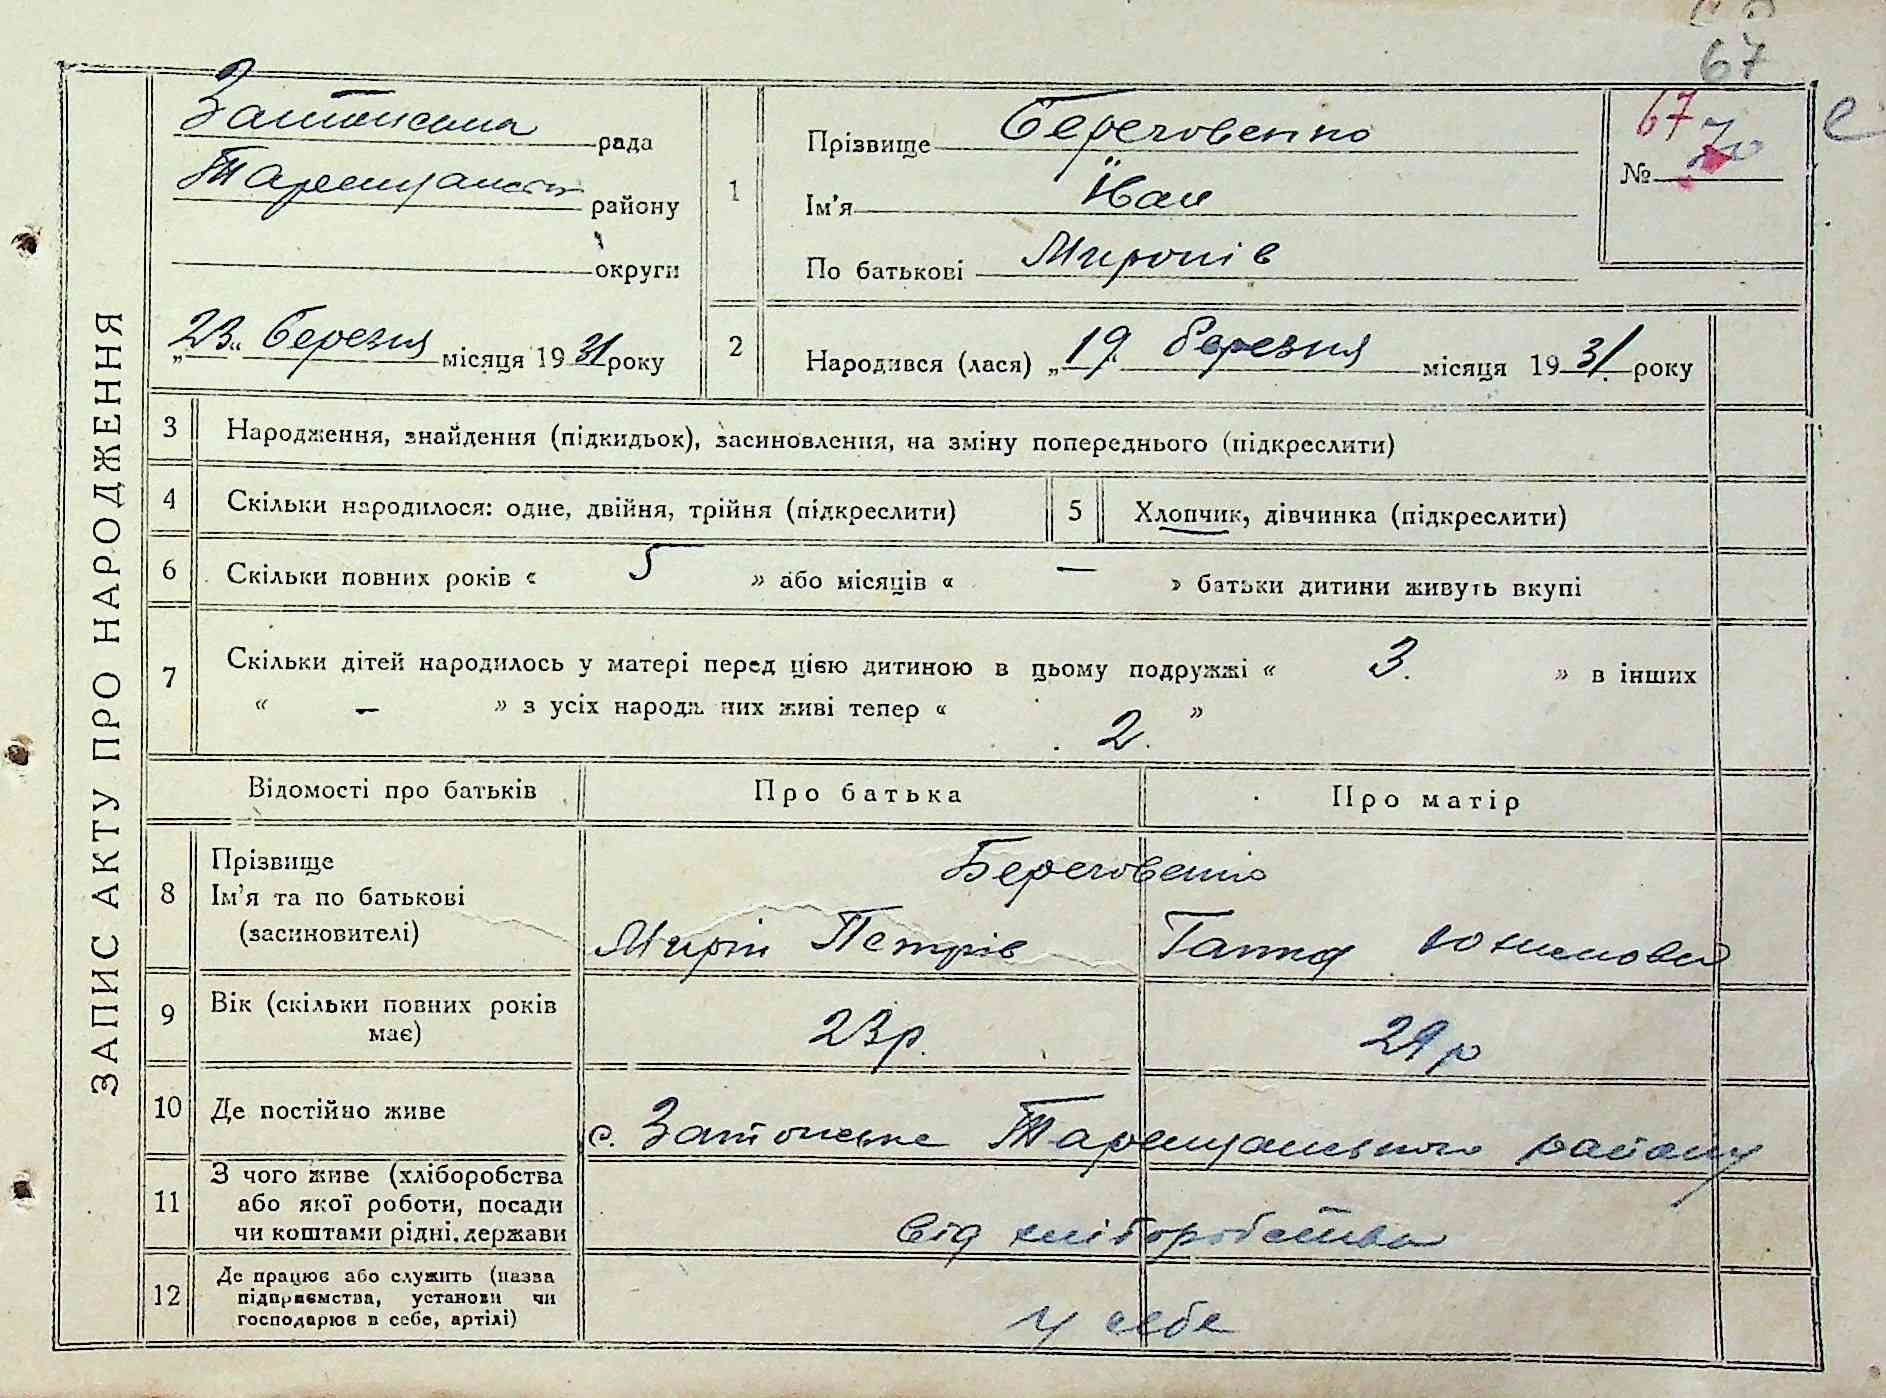 67
ЗАПИС АКТУ ПРО НАРОДЖЕННЯ
рада
району
округи
„23“ березня місяця 1931 року
1
Прізвище Береговенко
Ім'я Іван
По батькові Миронів
67
№ 70
2
Народився (лася) „19“ березня місяця 1931. року
3 Народження, знайдення (підкидьок), засиновлення, на зміну попереднього (підкреслити)
4 Скільки народилося: одне, двійня, трійня (підкреслити)
5 Хлопчик, дівчинка (підкреслити)
6 Скільки повних років « 5 » або місяців « — » батьки дитини живуть вкупі
7 Скільки дітей народилось у матері перед цією дитиною в цьому подружжі « 3. » в інших
« — » з усіх народж них живі тепер « 2. »
Відомості про батьків Про батька Про матір
8 Прізвище
Ім'я та по батькові
(засиновителі)
Береговенко
Мирін Петрів Ганна
9 Вік (скільки повних років
має)
23р. 24 р
10 Де постійно живе с. Затонське Таращанського району
11 З чого живе (хліборобства
або якої роботи, посади
чи коштами рідні, держави
Від хліборобства
12 Де працює або служить (назва
підприємства, установи чи
господарює в себе, артілі)
у себе